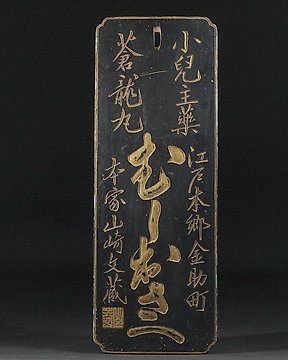 小兒主藥
蒼龍丸
江戸本郷金助町
むしおさへ
本家山崎文蔵